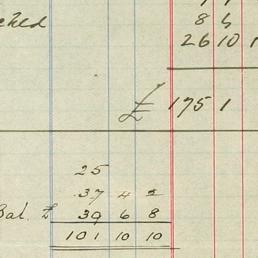 8 4
26 10 1
£ 175 1
25
37 4 2
Bal. £ 39 6 8
101 10 10